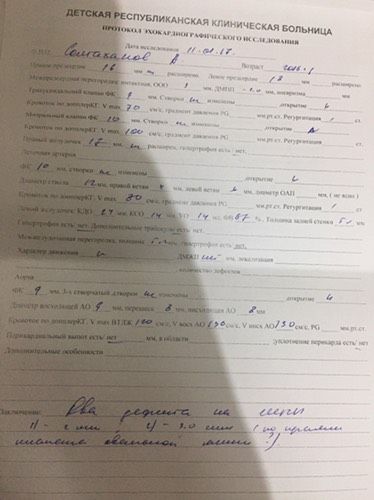 ДЕТСКАЯ РЕСПУБЛИКАНСКАЯ КЛИНИЧЕСКАЯ БОЛЬНИЦА
ПРОТОКОЛ ЭХОКАРДИОГРАФИЧЕСКОГО ИССЛЕДОВАНИЯ
Дата исследования 11.01.17.
Ф.И.О. Возраст
Правое предсердие 18 мм, расширено. Левое предсердие 18 мм, расширено
Межпредсердная перегородка: интактная, ООО ДМПП мм, аневризма
Трикуспидальный клапан ФК 9 Створки не изменены открытие
Кровоток по доплерКГ V max 70 см/с, градиент давления PG мм.рт.ст. Регургитация 1 ст.
Митральный клапан ФК 10 мм. Створки не изменены открытие
Кровоток по доплерКГ V max 100 см/с, градиент давления PG мм.рт.ст. Регургитация ст.
Правый желудочек мм, расширен, гипертрофия есть/ нет.
Легочная артерия
ФК 10, створки не изменены открытие
Диаметр ствола 12 мм, правой ветви мм, левой ветви мм, диаметр ОАП мм, ( не ясно )
Кровоток по доплерКГ. V max 80 см/с, градиент давления PG мм.рт.ст. Регургитация 1 ст.
Левый желудочек КДО 24 мл, КСО 14 мл, УО 14 мл, ФВ 67 %. Толщина задней стенки 5 мм.
Гипертрофия есть/ нет. Дополнительные трабекулы есть/ нет.
Межжелудочковая перегородка, толщина 5 мм, гипертрофия есть/ нет.
Характер движения н ДМЖП нет мм, локализация
количество дефектов
Аорта
ФК 9 мм, 3-х створчатый ,створки не изменены открытие
Диаметр восходящей АО 9 мм, перешеек 8 мм, нисходящая АО 8 мм
Кровотое по доплерКГ. V max ВТЛЖ см/с, V восх АО см/с, V нисх АО 130 см/с, PG мм.рт.ст.
Перикардиальный выпот есть/ нет мм, в области уплотнение перикарда есть/ нет
Дополнительные особенности
Заключение: Два дефекта на
1/ - 2 мм 2/ - 3.0 мм